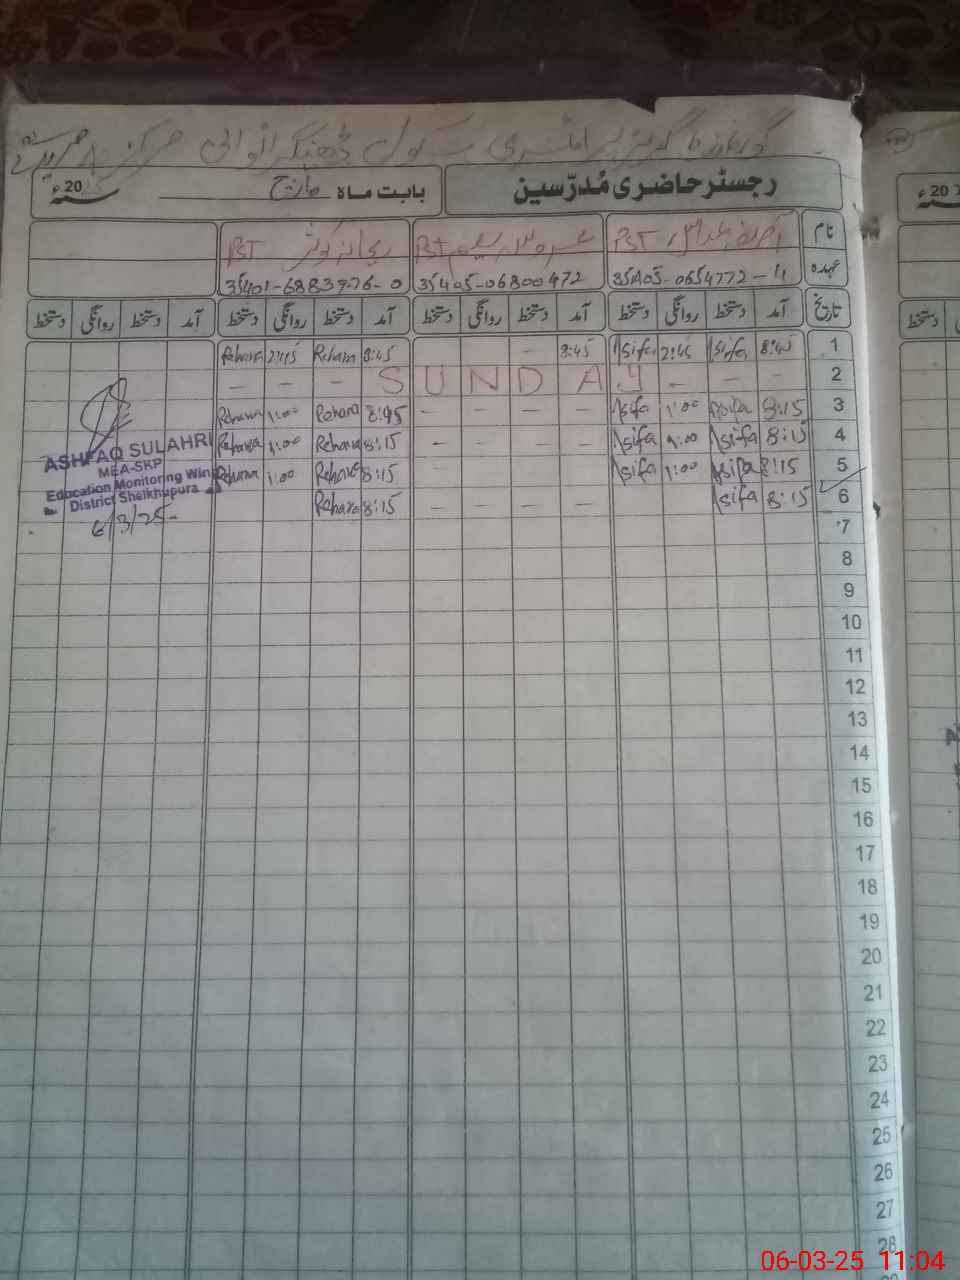 گورنمنٹ گرلز پرائمری سکول
رجسٹر حاضری مُدرّسین
بابت ماہ مارچ 2025ء
نام PST PST ریحانہ کوثر PST
عہدہ 35405-0654772-4 35405-06800472 35401-6883976-0
تاریخ آمد دستخط روانگی دستخط آمد دستخط روانگی دستخط آمد دستخط روانگی دستخط آمد دستخط روانگی دستخط
1 8:45 Asifa 2:45 Asifa 8:45 – Rehana 8:45 Rehana 2:45
2 – – – SUNDAY – – –
3 8:15 Asifa 1:00 Asifa – – – – 8:45 Rehana 1:00 Rehana
4 8:15 Asifa 1:00 Asifa – – – – 8:15 Rehana 1:00 Rehana
5 8:15 Asifa 1:00 Asifa – – – – 8:15 Rehana 1:00 Rehana
6 8:15 Asifa – – – – 8:15 Rehana
ASHFAQ SULAHRI
MEA-SKP
Education Monitoring Wing
District Sheikhupura
6/3/25
7
8
9
10
11
12
13
14
15
16
17
18
19
20
21
22
23
24
25
26
27
28
دستخط
20
06-03-25 11:04